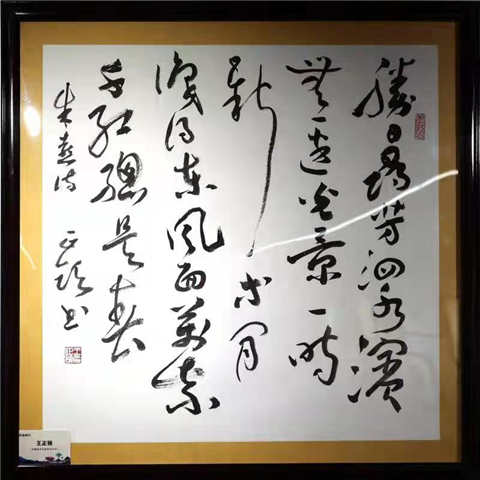 勝日尋芳泗水濱
無邊光景一時
新等閒
識得東風面萬紫
千紅總是春
朱熹詩
正 書
王正